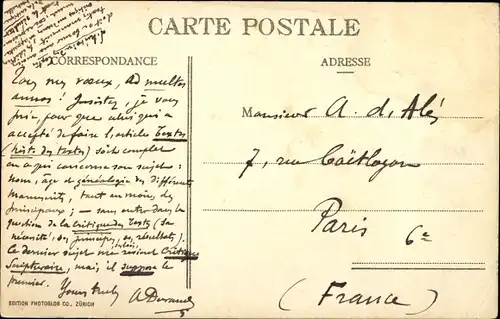 CARTE POSTALE
CORRESPONDANCE
ADRESSE
Tous mes vœux, ad multos
annos ! Insistez, je vous
prie, pour que celui qui a
accepté de faire l'article Textes
(hist. des textes) soit complet
en ce qui concerne son sujet :
nom, âge et généalogie des différents
manuscrits, tout au moins, des
principaux ; — sans entrer dans la
question de la critique des textes (sa
nécessité, ses principes, ses résultats).
Ce dernier sujet me
Critique
mais, il suppose le
premier.
Yours truly
A Durand
Monsieur A. d'Alès
7, rue Coëtlogon
Paris
6e
(France)
EDITION PHOTOGLOB CO., ZÜRICH